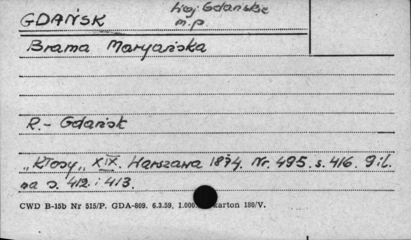 GDAŃSK
woj. Gdańskie
m.p.
Brama Maryańska
R.- Gdańsk
"Kłosy" XIX. Warszawa 1874. Nr. 495. s. 416. 9 il.
na s. 412. i 413.
CWD B-15b Nr 515/P. GDA-809. 6.3.59, 1.000 karton 180/V.